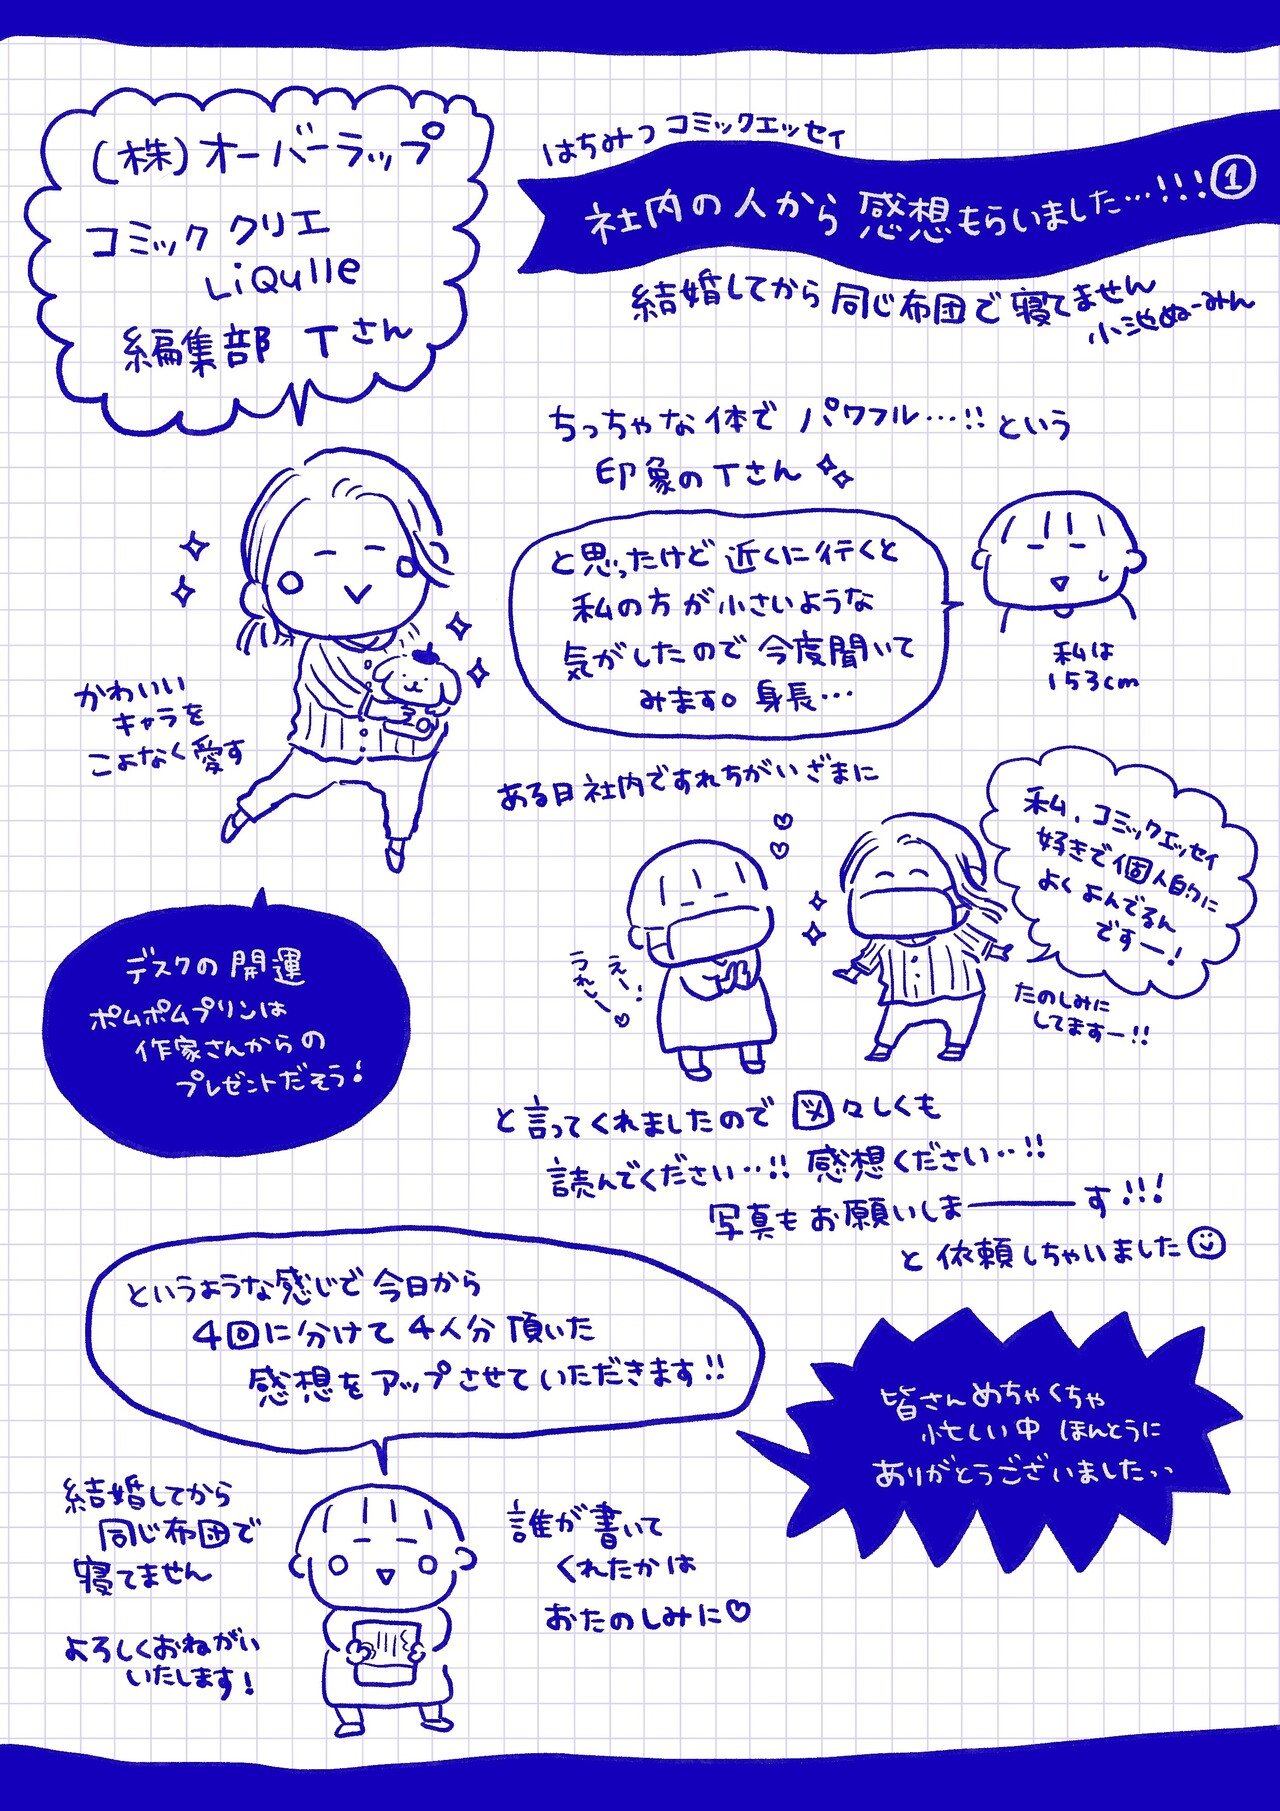 はちみつコミックエッセイ
社内の人から感想もらいました…!!!①
結婚してから同じ布団で寝てません
小池ぬーみん
(株)オーバーラップ
コミッククリエ
LiQulle
編集部 Tさん
ちっちゃな体でパワフル…!!という
印象のTさん
と思ったけど近くに行くと
私の方が小さいような
気がしたので今度聞いて
みます。身長…
私は
153cm
かわいい
キャラを
こよなく愛す
デスクの開運
ポムポムプリンは
作家さんからの
プレゼントだそう!
ある日社内ですれちがいざまに
私、コミックエッセイ
好きで個人的に
よくよんでるん
ですー!
たのしみに
してますー!!
えー!
うれしー♡
と言ってくれましたので図々しくも
読んでください…!!感想ください…!!
写真もお願いしま――――す!!!
と依頼しちゃいました
というような感じで今日から
4回に分けて4人分頂いた
感想をアップさせていただきます!!
皆さんめちゃくちゃ
忙しい中ほんとうに
ありがとうございました…
結婚してから
同じ布団で
寝てません
よろしくおねがい
いたします!
誰が書いて
くれたかは
おたのしみに♡